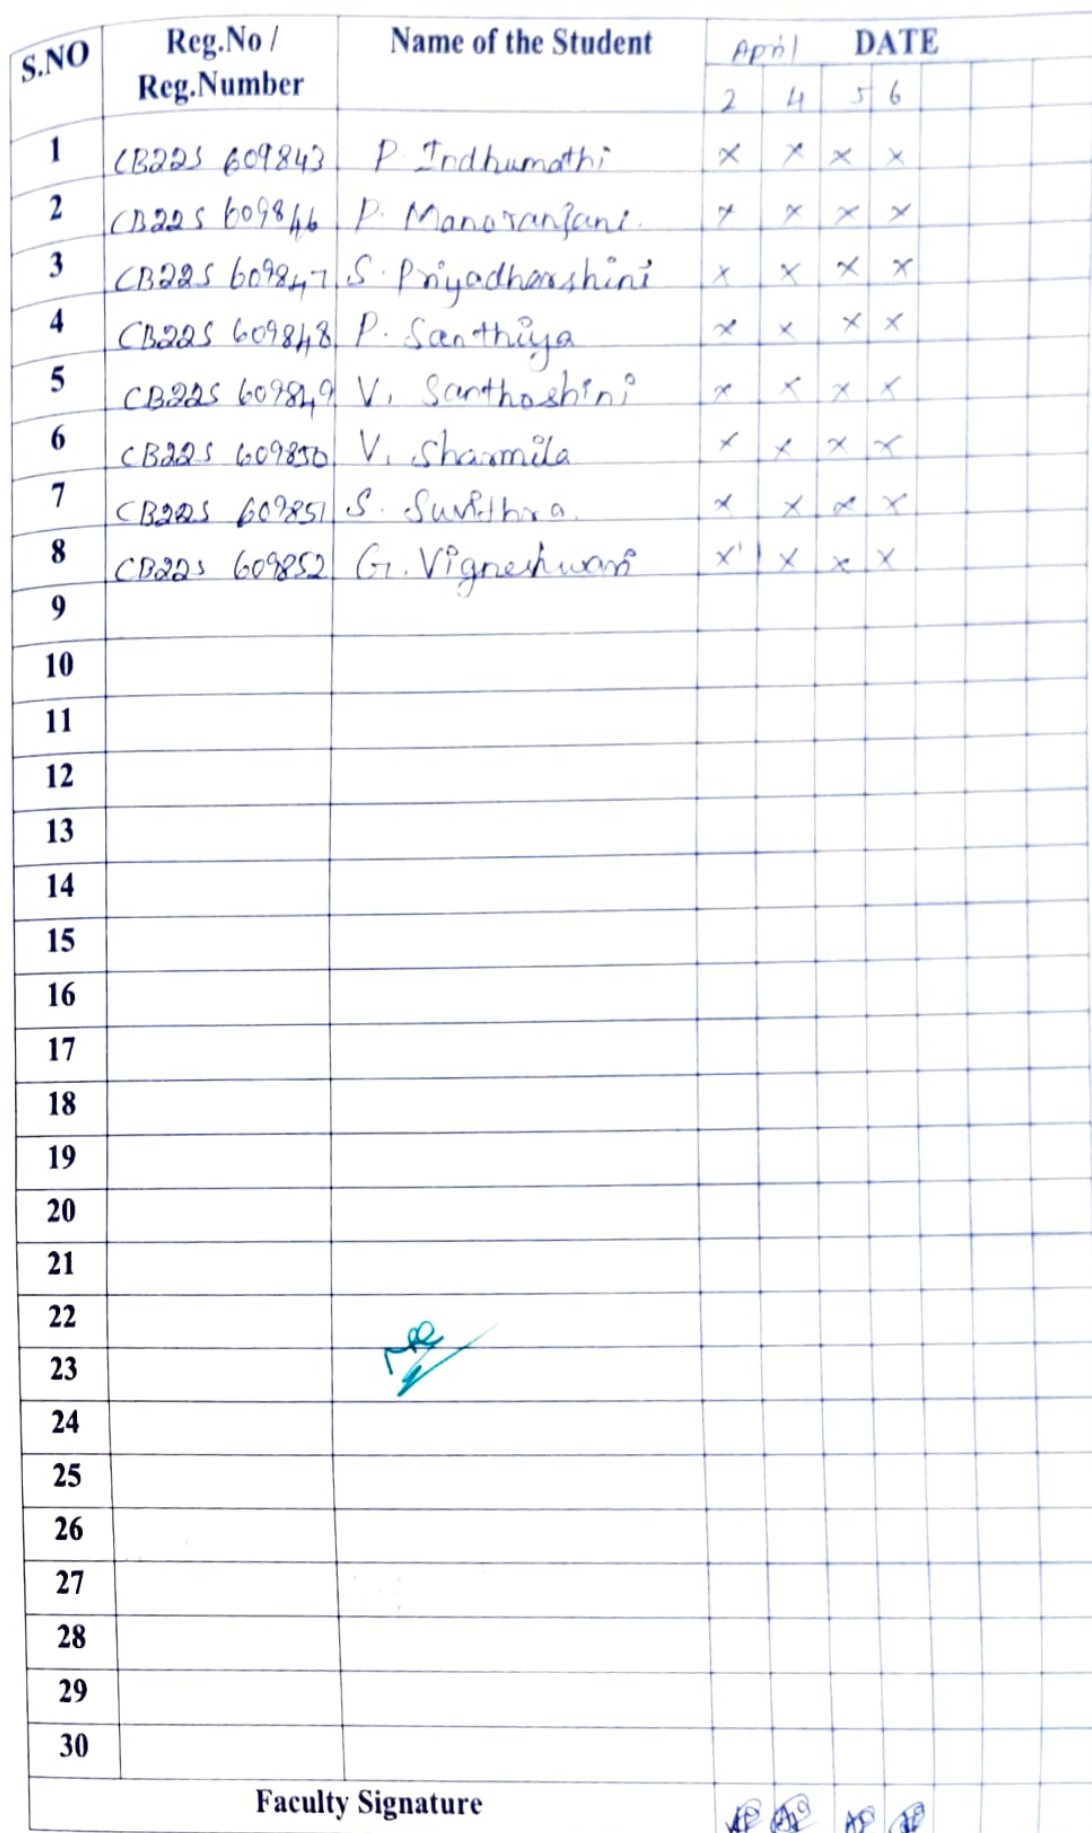 S.NO Reg.No / Reg.Number Name of the Student April DATE
2 4 5 6
1 CB22S 609843 P. Indhumathi x x x x
2 CB22S 609846 P. Manoranjani. x x x x
3 CB22S 609847 S. Priyadharshini x x x x
4 CB22S 609848 P. Santhiya x x x x
5 CB22S 609849 V. Santhoshini x x x x
6 CB22S 609850 V. Sharmila x x x x
7 CB22S 609851 S. Suvithra. x x x x
8 CB22S 609852 G. Vigneshwari x x x x
9
10
11
12
13
14
15
16
17
18
19
20
21
22
23
24
25
26
27
28
29
30
Faculty Signature